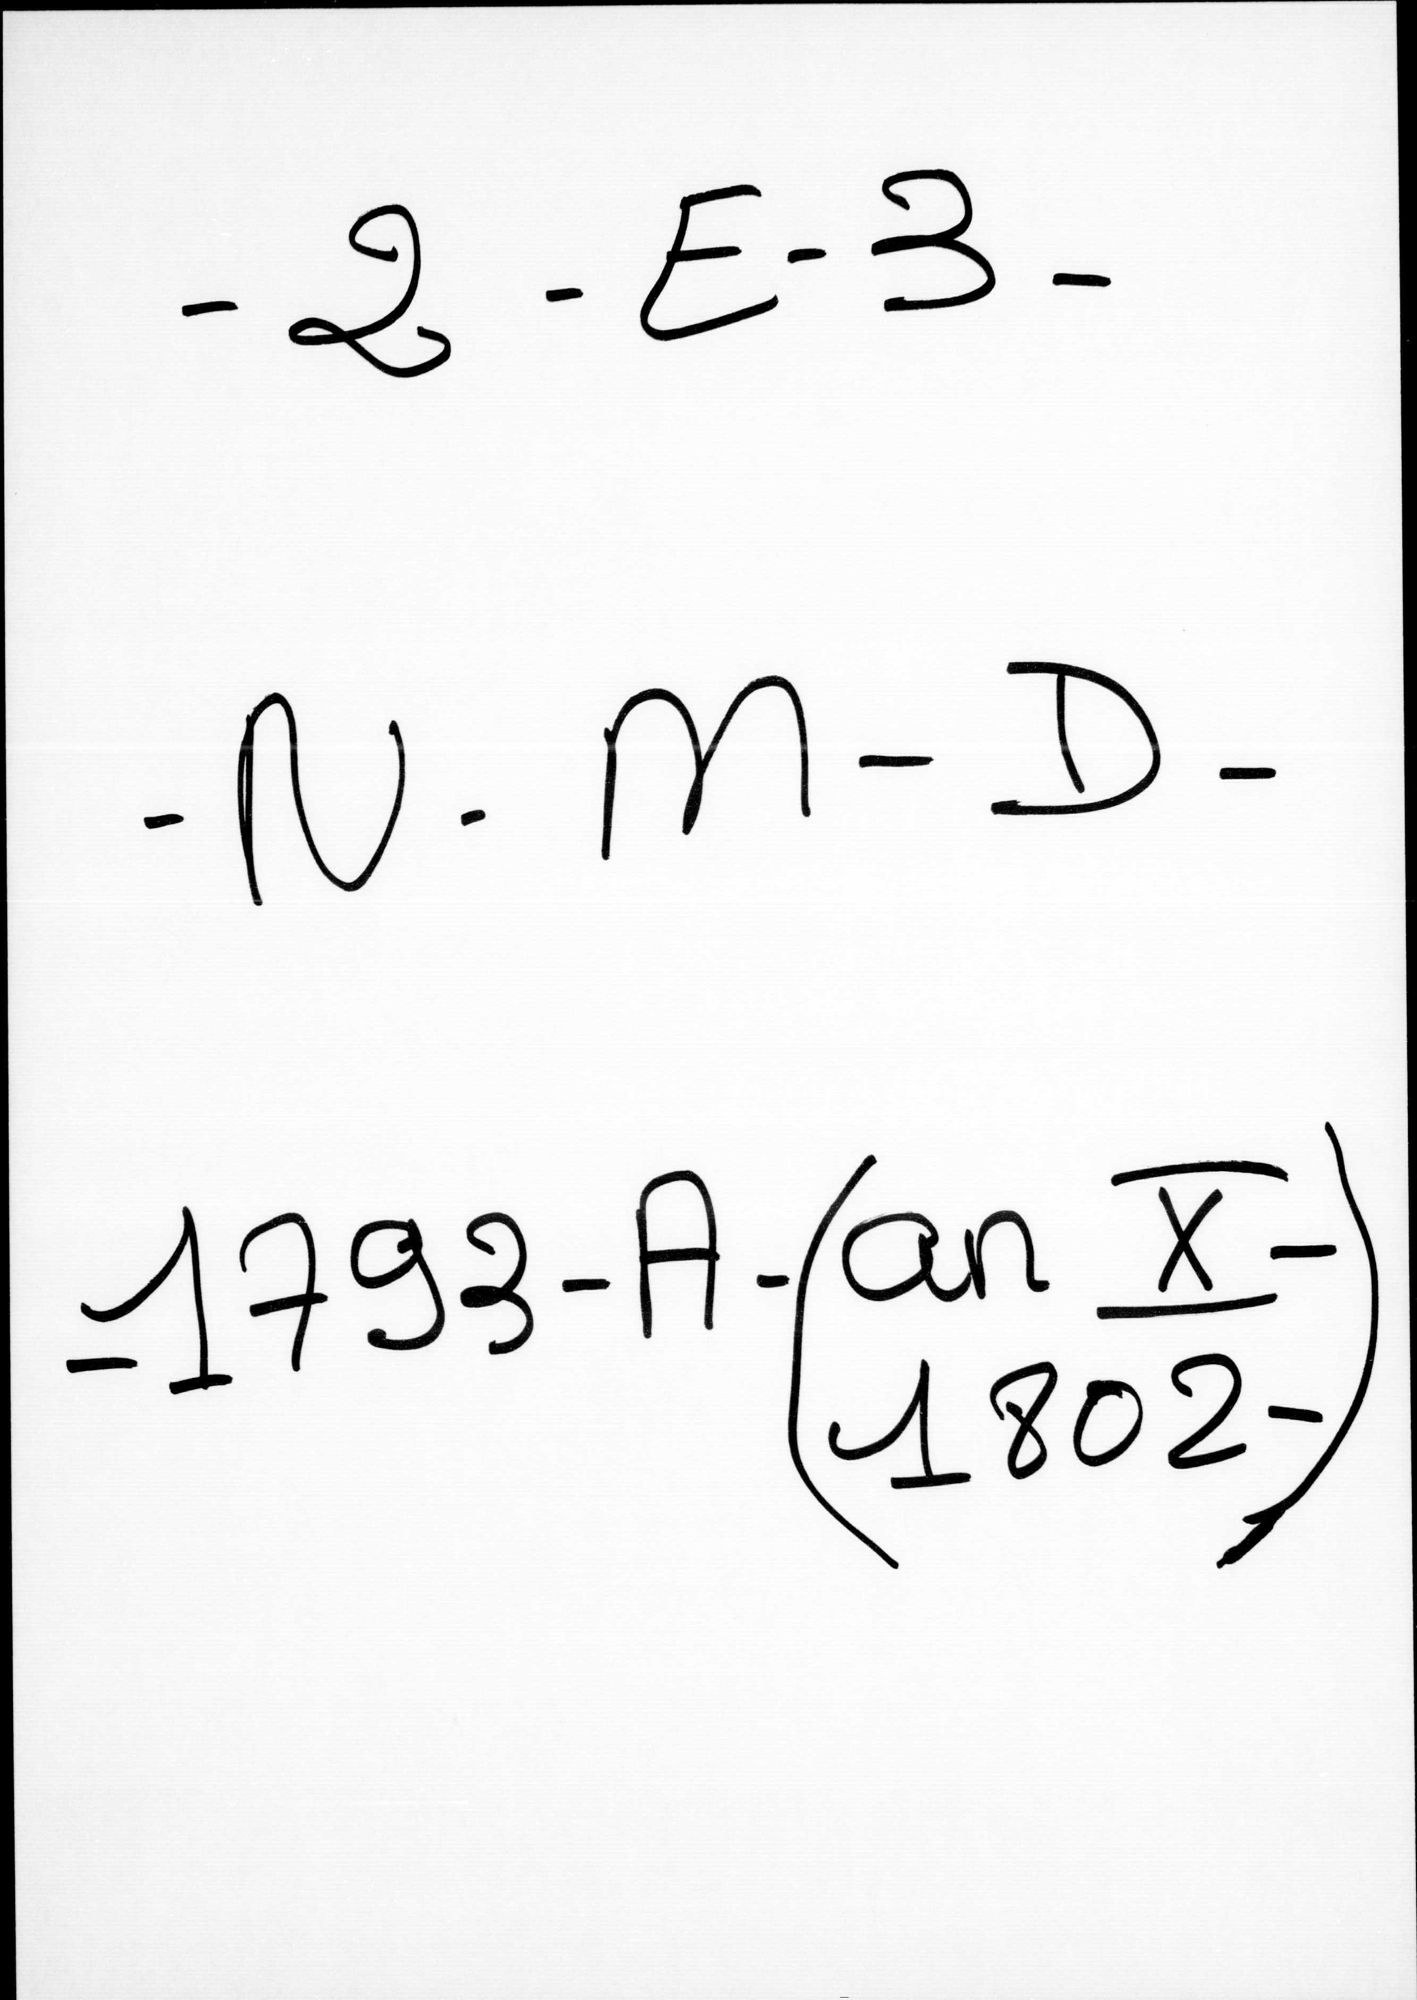 - 2 - E - 3 -
- N - M - D -
- 1793 - A - (an X -
1802 - )